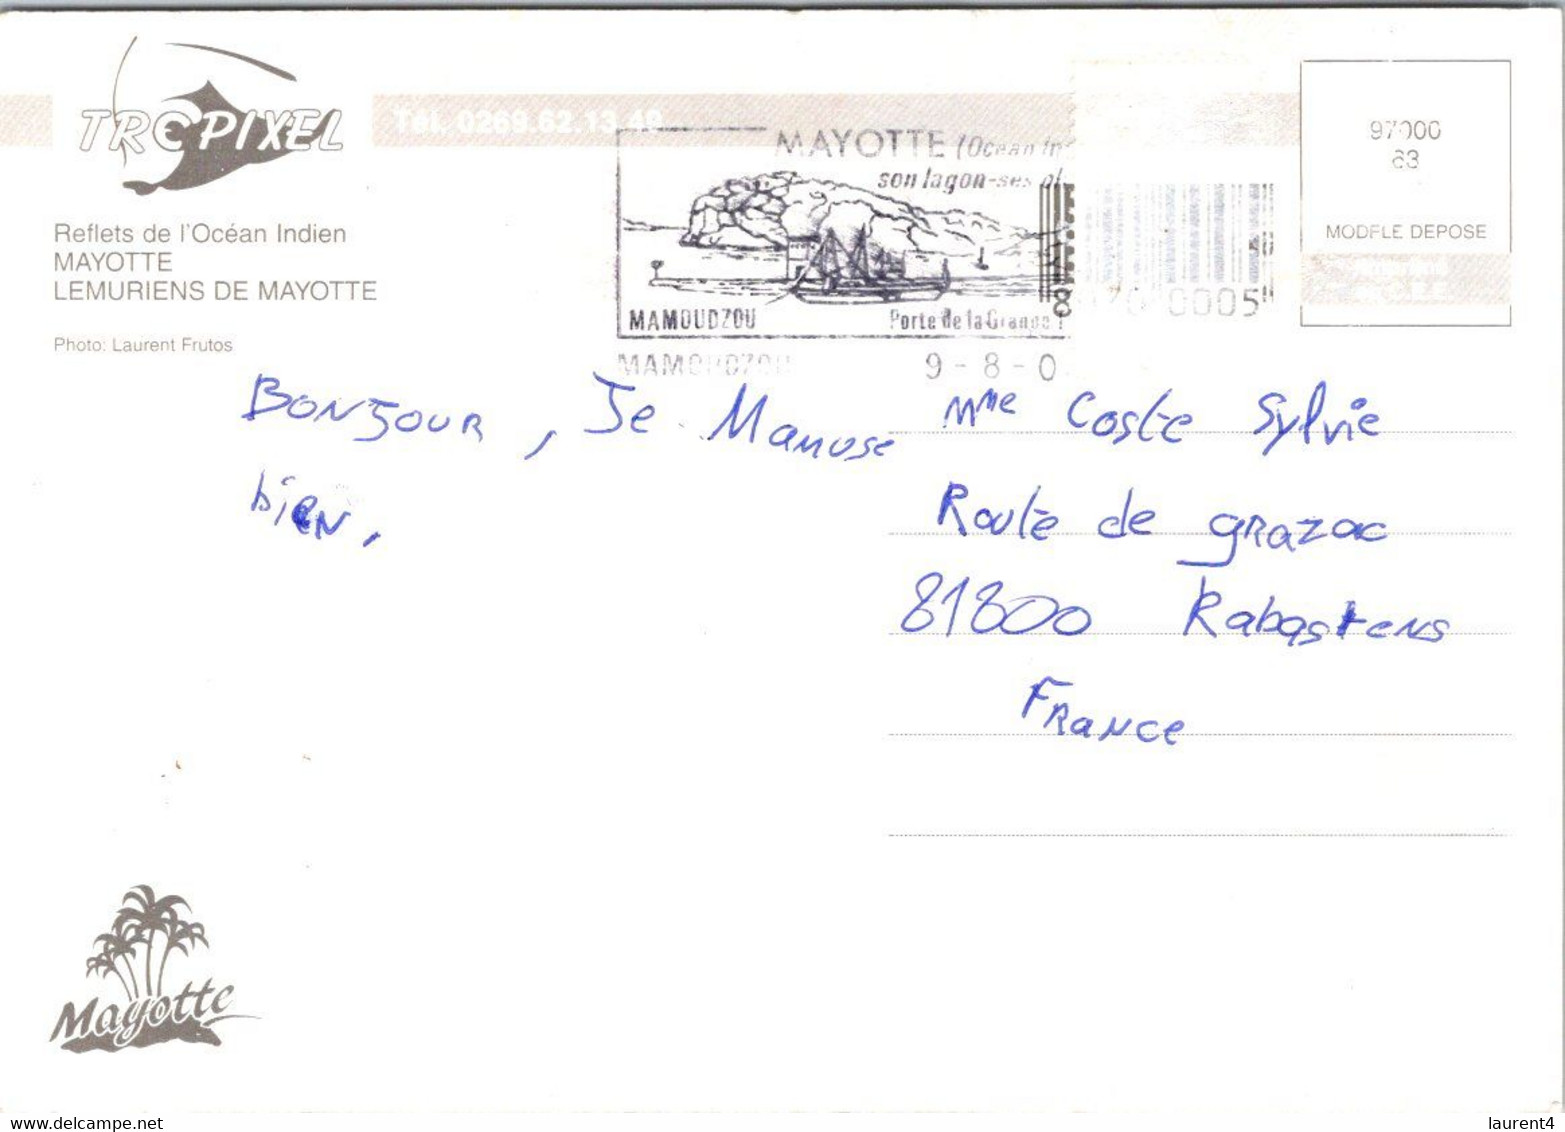 TROPIXEL
Tél. 0269.62.13.49
Reflets de l'Océan Indien
MAYOTTE
LEMURIENS DE MAYOTTE
Photo: Laurent Frutos
MAYOTTE (Océan In
son lagon-ses
MAMOUDZOU
Porte de la Grande T
MAMOUDZOU
9-8-0
0005
97000
63
MODELE DEPOSE
BONJOUR, Je M'amuse
bien,
Mme Coste Sylvie
Route de grazac
81800 Rabastens
FRANCE
Mayotte
www.delcampe.net
laurent4